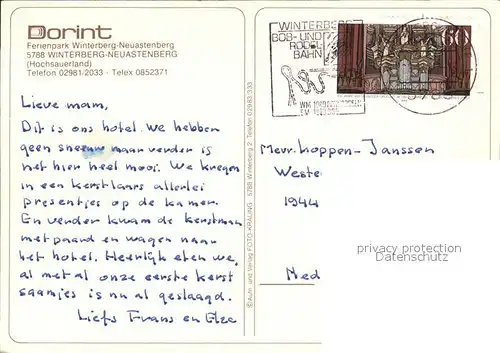 Dorint
Ferienpark Winterberg-Neuastenberg
5788 WINTERBERG-NEUASTENBERG
(Hochsauerland)
Telefon 02981/2033 - Telex 0852371
Lieve mam,
Dit is ons hotel. We hebben
geen sneeuw maar verder is
het hier heel mooi. We kregen
in een kerstlaars allerlei
presentjes op de kamer.
En verder kwam de kerstman
met paard en wagen naar
het hotel. Heerlijk eten we,
al met al onze eerste kerst
saampjes is nu al geslaagd.
Liefs Frans en Elze
©Auto- und Verlag FOTO-KRALING · 5788 Winterberg 2 · Telefon 02983 333
WINTERBERG
BOB- UND
RODEL
BAHN
60
Mevr. Hoppen-Janssen
Weste
1944
Ned
privacy protection
Datenschutz